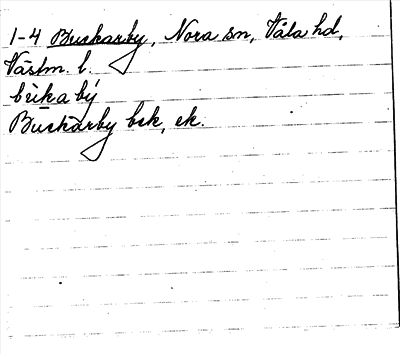 1-4 Buskarby, Nora sn, Våla hd,
Västm. l.
bùskabý
Buskarby bsk, ek.